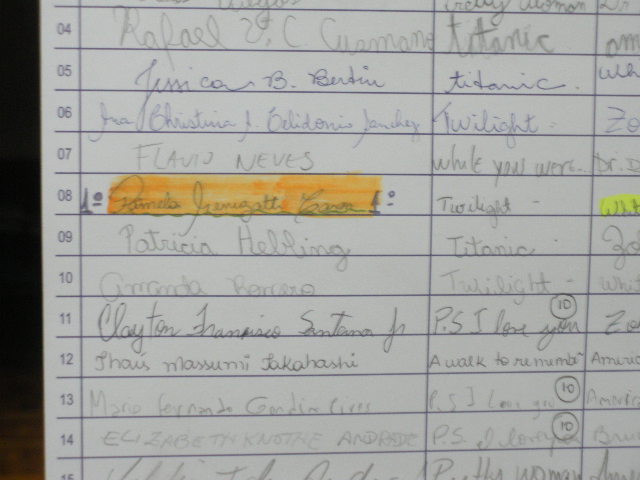 Pretty woman Dr
04 Rafael V. C. Cusmano titanic am
05 Jessica B. Bertin titanic. Wh
06 Christina J. Celidonio Sanchez Twilight - Zo
07 FLAVIO NEVES While you were.. Dr. D
08 1º Pamela 1º Twilight - Whit
09 Patricia Helbling Titanic - Zo
10 Amanda Romero Twilight - Whit
11 Clayton Francisco Santana Jr P.S I love you 10 Zo
12 Thais Massumi Takahashi A walk to remembr America
13 Maria Fernanda Gondim P.S I love you 10 America
14 ELIZABETH KNOTHE ANDRADE P.S. I love you 10 Bru
15 Pretty woman